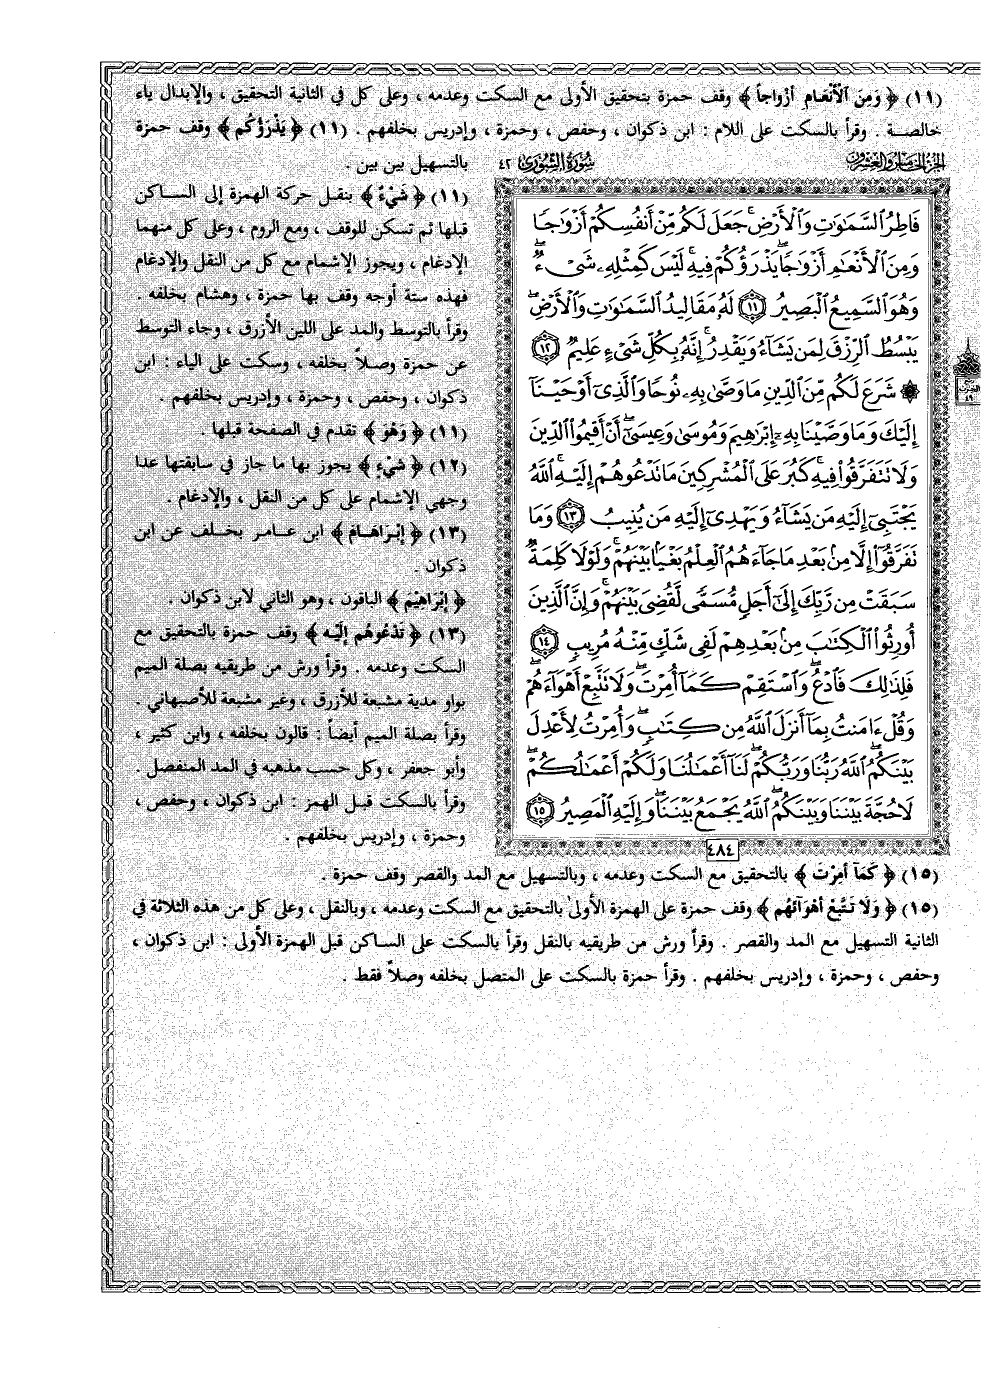 (١١) ﴿ وَمِنَ الْأَنْعَامِ أَزْوَاجاً ﴾ وقف حمزة بتحقيق الأولى مع السكت وعدمه ، وعلى كل في الثانية التحقيق ، والإبدال ياء
خالصة . وقرأ بالسكت على اللام : ابن ذكوان ، وحفص ، وحمزة ، وإدريس بخلفهم . (١١) ﴿ يَذْرَؤُكُم ﴾ وقف حمزة
بالتسهيل بين بين .
الجزء الخامس والعشرون
سورة الشورى ٤٢
فَاطِرُ السَّمَٰوَٰتِ وَالْأَرْضِ ۚ جَعَلَ لَكُم مِّنْ أَنفُسِكُمْ أَزْوَٰجًا
وَمِنَ الْأَنْعَٰمِ أَزْوَٰجًا ۖ يَذْرَؤُكُمْ فِيهِ ۚ لَيْسَ كَمِثْلِهِۦ شَىْءٌ ۖ
وَهُوَ السَّمِيعُ الْبَصِيرُ ١١ لَهُۥ مَقَالِيدُ السَّمَٰوَٰتِ وَالْأَرْضِ ۖ
يَبْسُطُ الرِّزْقَ لِمَن يَشَآءُ وَيَقْدِرُ ۚ إِنَّهُۥ بِكُلِّ شَىْءٍ عَلِيمٌ ١٢
۞ شَرَعَ لَكُم مِّنَ الدِّينِ مَا وَصَّىٰ بِهِۦ نُوحًا وَالَّذِىٓ أَوْحَيْنَآ
إِلَيْكَ وَمَا وَصَّيْنَا بِهِۦٓ إِبْرَٰهِيمَ وَمُوسَىٰ وَعِيسَىٰٓ ۖ أَنْ أَقِيمُوا الدِّينَ
وَلَا تَتَفَرَّقُوا فِيهِ ۚ كَبُرَ عَلَى الْمُشْرِكِينَ مَا تَدْعُوهُمْ إِلَيْهِ ۚ اللَّهُ
يَجْتَبِىٓ إِلَيْهِ مَن يَشَآءُ وَيَهْدِىٓ إِلَيْهِ مَن يُنِيبُ ١٣ وَمَا
تَفَرَّقُوٓا إِلَّا مِنۢ بَعْدِ مَا جَآءَهُمُ الْعِلْمُ بَغْيًۢا بَيْنَهُمْ ۚ وَلَوْلَا كَلِمَةٌ
سَبَقَتْ مِن رَّبِّكَ إِلَىٰٓ أَجَلٍ مُّسَمًّى لَّقُضِىَ بَيْنَهُمْ ۚ وَإِنَّ الَّذِينَ
أُورِثُوا الْكِتَٰبَ مِنۢ بَعْدِهِمْ لَفِى شَكٍّ مِّنْهُ مُرِيبٍ ١٤
فَلِذَٰلِكَ فَادْعُ ۖ وَاسْتَقِمْ كَمَآ أُمِرْتَ ۖ وَلَا تَتَّبِعْ أَهْوَآءَهُمْ ۖ
وَقُلْ ءَامَنتُ بِمَآ أَنزَلَ اللَّهُ مِن كِتَٰبٍ ۖ وَأُمِرْتُ لِأَعْدِلَ
بَيْنَكُمُ ۖ اللَّهُ رَبُّنَا وَرَبُّكُمْ ۖ لَنَآ أَعْمَٰلُنَا وَلَكُمْ أَعْمَٰلُكُمْ ۖ
لَا حُجَّةَ بَيْنَنَا وَبَيْنَكُمُ ۖ اللَّهُ يَجْمَعُ بَيْنَنَا ۖ وَإِلَيْهِ الْمَصِيرُ ١٥
٤٨٤
(١١) ﴿ شَيْءٌ ﴾ بنقل حركة الهمزة إلى الساكن
قبلها ثم تسكن للوقف ، ومع الروم ، وعلى كل منهما
الإدغام ، ويجوز الإشمام مع كل من النقل والإدغام
فهذه ستة أوجه وقف بها حمزة ، وهشام بخلفه .
وقرأ بالتوسط والمد على اللين الأزرق ، وجاء التوسط
عن حمزة وصلاً بخلفه ، وسكت على الياء : ابن
ذكوان ، وحفص ، وحمزة ، وإدريس بخلفهم .
(١١) ﴿ وَهُوَ ﴾ تقدم في الصفحة قبلها .
(١٢) ﴿ شَيْءٍ ﴾ يجوز بها ما جاز في سابقتها عدا
وجهي الإشمام على كل من النقل ، والإدغام .
(١٣) ﴿ إِبْرَاهَامَ ﴾ ابن عامر بخلف عن ابن
ذكوان .
﴿ إِبْرَاهِيْمَ ﴾ الباقون ، وهو الثاني لابن ذكوان .
(١٣) ﴿ تَدْعُوهُم إِلَيْه ﴾ وقف حمزة بالتحقيق مع
السكت وعدمه . وقرأ ورش من طريقيه بصلة الميم
بواو مدية مشبعة للأزرق ، وغير مشبعة للأصبهاني .
وقرأ بصلة الميم أيضاً : قالون بخلفه ، وابن كثير ،
وأبو جعفر ، وكل حسب مذهبه في المد المنفصل .
وقرأ بالسكت قبل الهمز : ابن ذكوان ، وحفص ،
وحمزة ، وإدريس بخلفهم .
(١٥) ﴿ كَمَآ أُمِرْتَ ﴾ بالتحقيق مع السكت وعدمه ، وبالتسهيل مع المد والقصر وقف حمزة .
(١٥) ﴿ وَلَا تَتَّبِعْ أَهْوَآءَهُم ﴾ وقف حمزة على الهمزة الأولى بالتحقيق مع السكت وعدمه ، وبالنقل ، وعلى كل من هذه الثلاثة في
الثانية التسهيل مع المد والقصر . وقرأ ورش من طريقيه بالنقل وقرأ بالسكت على الساكن قبل الهمزة الأولى : ابن ذكوان ،
وحفص ، وحمزة ، وإدريس بخلفهم . وقرأ حمزة بالسكت على المتصل بخلفه وصلاً فقط .